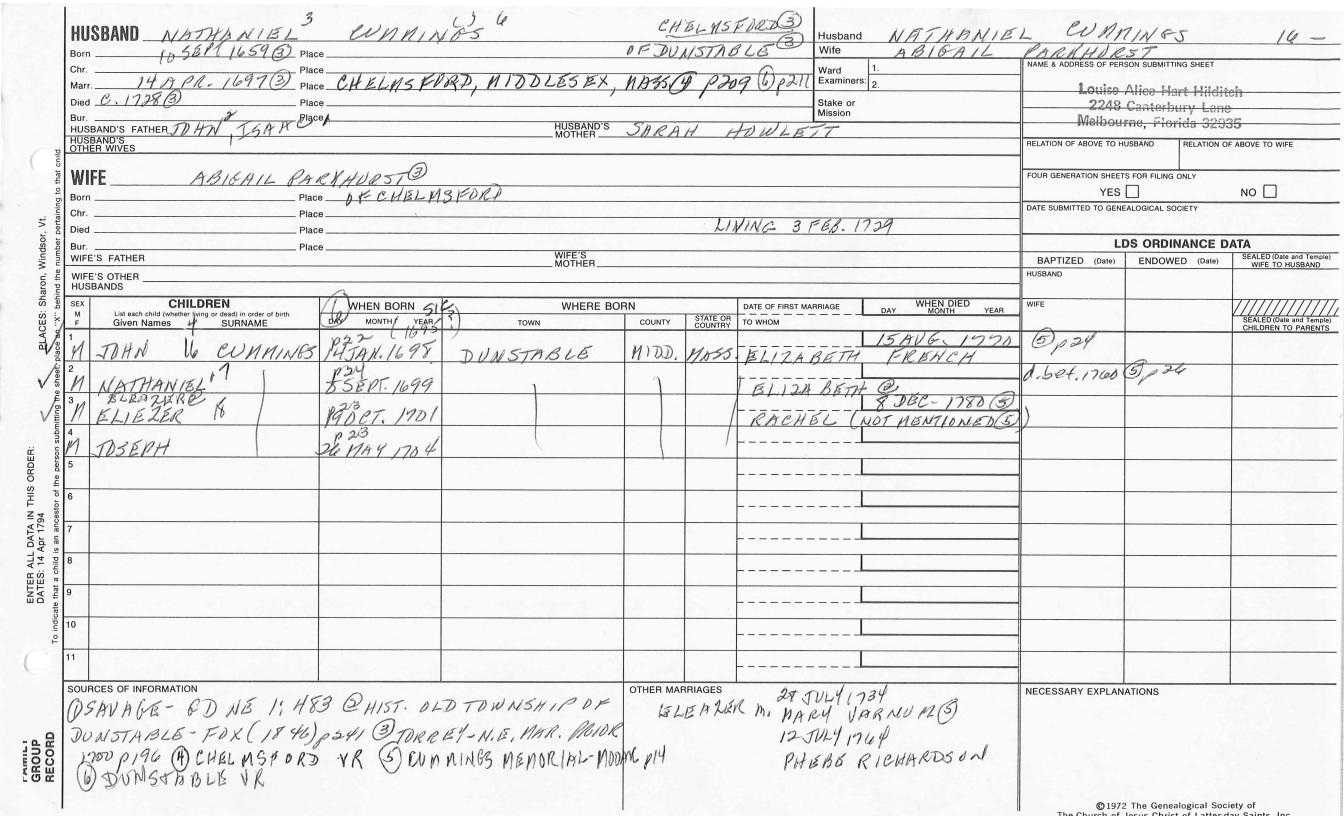 HUSBAND NATHANIEL 3 CUMMINGS 6
Born 10 SEPT 1659 ③ Place CHELMSFORD ③
OF DUNSTABLE ③
Chr. Place
Marr. 14 APR. 1697 ③ Place CHELMSFORD, MIDDLESEX, MASS ④ p209 ⑥ p211
Died C. 1728 ③ Place
Bur. Place
HUSBAND'S FATHER JOHN 2, ISAAC 1 HUSBAND'S MOTHER SARAH HOWLETT
HUSBAND'S OTHER WIVES
WIFE ABIGAIL PARKHURST ③
Born Place OF CHELMSFORD
Chr. Place
Died Place LIVING 3 FEB. 1729
Bur. Place
WIFE'S FATHER WIFE'S MOTHER
WIFE'S OTHER HUSBANDS
Husband NATHANIEL CUMMINGS 16 —
Wife ABIGAIL PARKHURST
Ward Examiners: 1.
2.
Stake or Mission
NAME & ADDRESS OF PERSON SUBMITTING SHEET
Louise Alice Hart Hilditch
2248 Canterbury Lane
Melbourne, Florida 32935
RELATION OF ABOVE TO HUSBAND RELATION OF ABOVE TO WIFE
FOUR GENERATION SHEETS FOR FILING ONLY
YES NO
DATE SUBMITTED TO GENEALOGICAL SOCIETY
LDS ORDINANCE DATA
BAPTIZED (Date) ENDOWED (Date) SEALED (Date and Temple) WIFE TO HUSBAND
HUSBAND
WIFE
SEALED (Date and Temple) CHILDREN TO PARENTS
SEX M F
CHILDREN
List each child (whether living or dead) in order of birth
Given Names 4 SURNAME
⑥ WHEN BORN SIC?
DAY MONTH YEAR
WHERE BORN
TOWN COUNTY STATE OR COUNTRY
DATE OF FIRST MARRIAGE
TO WHOM
WHEN DIED
DAY MONTH YEAR
1 M JOHN 16 CUMMINGS p22 14 JAN. 1698 DUNSTABLE MIDD. MASS. ELIZABETH FRENCH 15 AUG. 1770 ⑤ p24
2 M NATHANIEL 17 p24 5 SEPT. 1699 ELIZABETH ② d. bet. 1760 ⑤ p26
3 M ELEAZER ELIEZER 18 p23 19 OCT. 1701 RACHEL (NOT MENTIONED ⑤) 8 DEC - 1780 ⑤
4 M JOSEPH p23 26 MAY 1704
5
6
7
8
9
10
11
SOURCES OF INFORMATION
① SAVAGE - GD NE 1: 483 ② HIST. OLD TOWNSHIP OF
DUNSTABLE - FOX (1846) p241 ③ TORREY - N.E. MAR. PRIOR
1700 p196 ④ CHELMSFORD VR ⑤ CUMMINGS MEMORIAL - p14
⑥ DUNSTABLE VR
OTHER MARRIAGES
28 JULY 1734
ELEAZER M. MARY VARNUM ⑤
12 JULY 1764
PHEBE RICHARDSON
NECESSARY EXPLANATIONS
ENTER ALL DATA IN THIS ORDER:
DATES: 14 Apr 1794
PLACES: Sharon, Windsor, Vt.
To indicate that a child is an ancestor of the person submitting the sheet, place an "X" behind the number pertaining to that child.
FAMILY GROUP RECORD
©1972 The Genealogical Society of
The Church of Jesus Christ of Latter-day Saints, Inc.